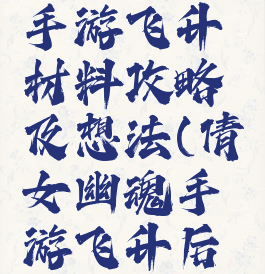 手游飞升
材料攻略
及想法(倩
女幽魂手
游飞升后